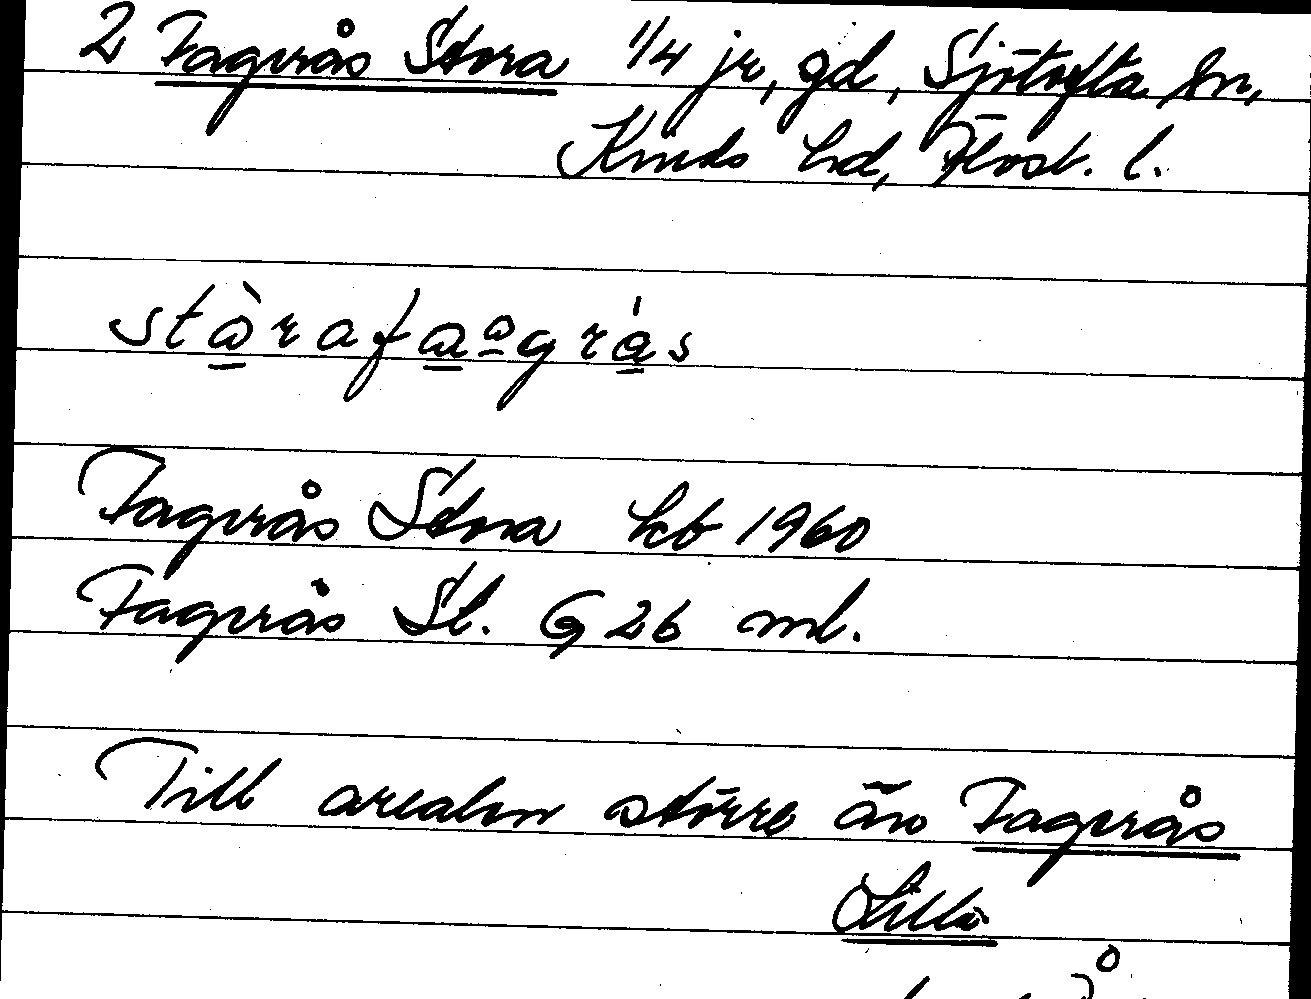 2 Fagerås Stora 1/4 jr, gd, Sjötofta sn,
Kinds hd, Älvsb. l.
stàrafaagrás
Fagerås Stora kb 1960
Fagerås St. G 26 ml.
Till arealen större än Fagerås
Lilla